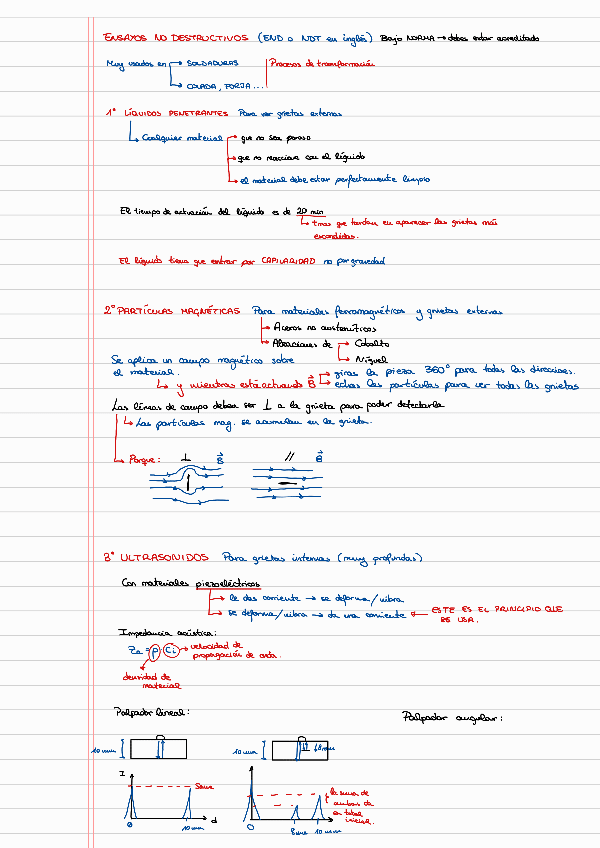 ENSAYOS NO DESTRUCTIVOS (END o NDT en inglés) Bajo NORMA → debes estar acreditado
Muy usados en → SOLDADURAS | Procesos de transformación
→ COLADA, FORJA...
1º LÍQUIDOS PENETRANTES Para ver grietas externas
→ Cualquier material → que no sea poroso
→ que no reaccione con el líquido
→ el material debe estar perfectamente limpio
El tiempo de actuación del líquido es de 20 min
→ tmas que tardan en aparecer las grietas más
escondidas.
El líquido tiene que entrar por CAPILARIDAD no por gravedad
2º PARTÍCULAS MAGNÉTICAS Para materiales ferromagnéticos y grietas externas
→ Aceros no austeníticos
→ Aleaciones de → Cobalto
→ Níquel
Se aplica un campo magnético sobre
el material.
→ y mientras está actuando B → giras la pieza 360º para todas las direcciones.
→ echas las partículas para ver todas las grietas
Las líneas de campo deben ser ⊥ a la grieta para poder detectarla
→ Las partículas mag. se acumulan en la grieta.
→ Porque: ⊥ B // B
3º ULTRASONIDOS Para grietas internas (muy profundas)
Con materiales piezoeléctricos
→ le das corriente → se deforma/vibra
→ se deforma/vibra → da una corriente ← ESTE ES EL PRINCIPIO QUE
SE USA.
Impedancia acústica:
Za = ρ · CL → velocidad de
propagación de onda.
densidad de
material
Palpador lineal: Palpador angular:
10 mm 10 mm 8mm
I
Suma la suma de
ambas da
la total
inicial.
0 10 mm d 0 8mm 10 mm